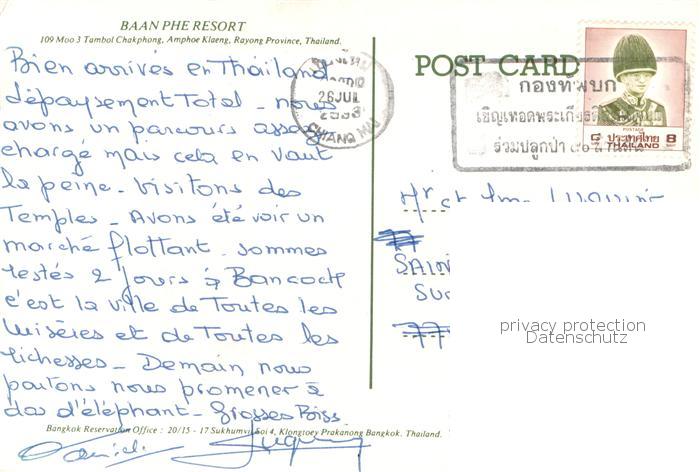 BAAN PHE RESORT
109 Moo 3 Tambol Chakphong, Amphoe Klaeng, Rayong Province, Thailand.
Bien arrivés en Thailand
dépaysement Total - nous
avons un parcours assez
chargé mais cela en vaut
la peine - Visitons des
Temples - Avons été voir un
marché flottant - sommes
restés 2 jours à Bancock
c'est la ville de Toutes les
Misères et de Toutes les
richesses - Demain nous
partons nous promener à
dos d'éléphant - Grosses Biss
Bangkok Reservation Office : 20/15 - 17 Sukhumvit Soi 4, Klongtoey Prakanong Bangkok. Thailand.
POST CARD
26 JUL
CHIANG MAI
กองทัพบก
เชิญเทอดพระเกียรติ
ร่วมปลูกป่า
POSTAGE
๘ ประเทศไทย 8
THAILAND
Mr et
SAIN
Su
privacy protection
Datenschutz